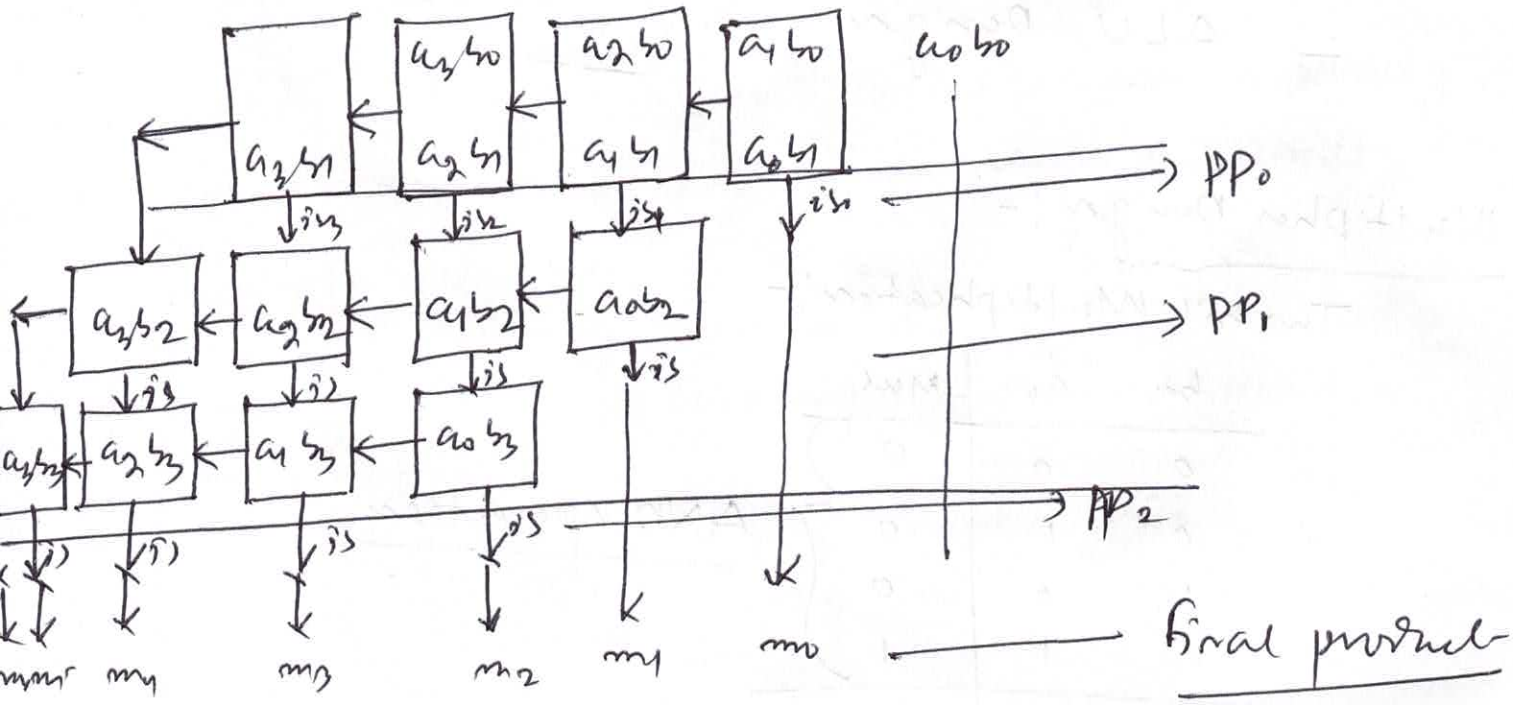 a3b0 a2b0 a1b0 a0b0
a3b1 a2b1 a1b1 a0b1
PP0
is3 is2 is1 is0
a3b2 a2b2 a1b2 a0b2
PP1
is is is is
a3b3 a2b3 a1b3 a0b3
PP2
is is is is
m4 m3 m2 m1 m0
final product